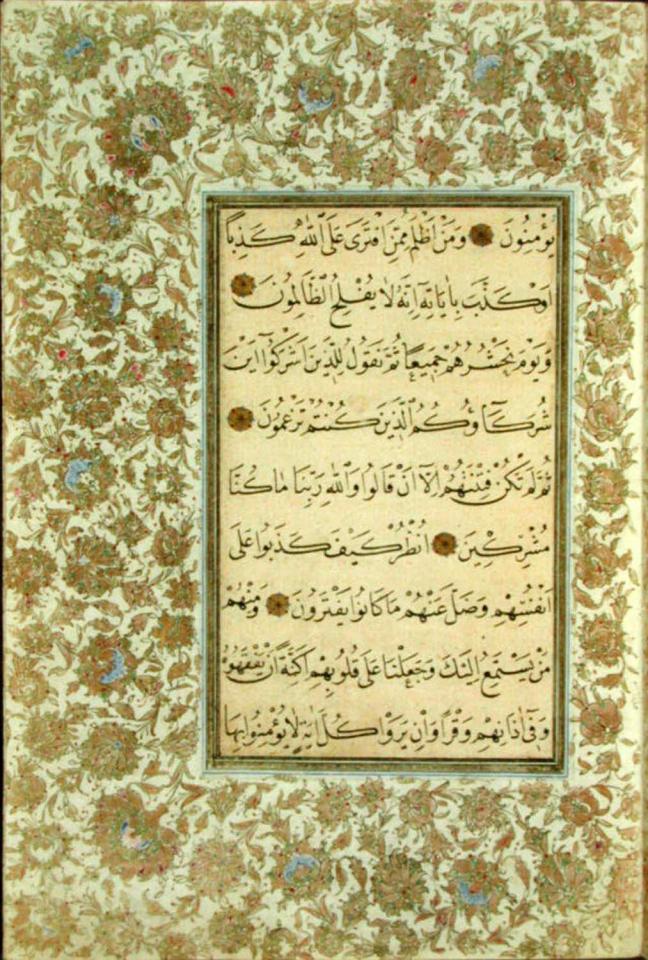 يُؤْمِنُونَ وَمَنْ اَظْلَمُ مِمَّنِ افْتَرٰى عَلَى اللّٰهِ كَذِبًا
اَوْ كَذَّبَ بِاٰيَاتِهٖٓ اِنَّهُ لَا يُفْلِحُ الظَّالِمُونَ
وَيَوْمَ نَحْشُرُهُمْ جَمِيعًا ثُمَّ نَقُولُ لِلَّذِينَ اَشْرَكُوٓا اَيْنَ
شُرَكَآؤُكُمُ الَّذِينَ كُنْتُمْ تَزْعُمُونَ
ثُمَّ لَمْ تَكُنْ فِتْنَتُهُمْ اِلَّآ اَنْ قَالُوا وَاللّٰهِ رَبِّنَا مَا كُنَّا
مُشْرِكِينَ اُنْظُرْ كَيْفَ كَذَبُوا عَلٰٓى
اَنْفُسِهِمْ وَضَلَّ عَنْهُمْ مَا كَانُوا يَفْتَرُونَ وَمِنْهُمْ
مَنْ يَسْتَمِعُ اِلَيْكَ وَجَعَلْنَا عَلٰى قُلُوبِهِمْ اَكِنَّةً اَنْ يَفْقَهُوهُ
وَفٖٓى اٰذَانِهِمْ وَقْرًا وَاِنْ يَرَوْا كُلَّ اٰيَةٍ لَا يُؤْمِنُوا بِهَا